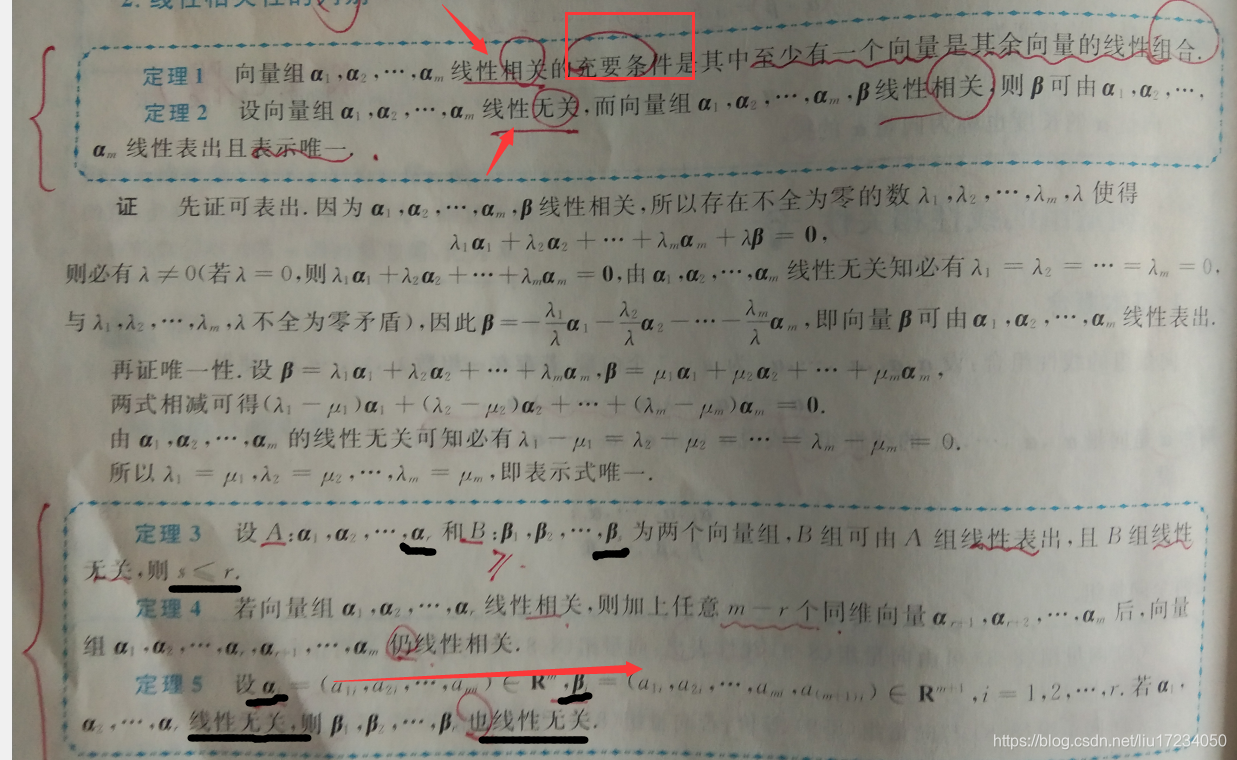 2. 线性相关性的判别
定理 1 向量组 α₁,α₂,⋯,αₘ 线性相关的充要条件是其中至少有一个向量是其余向量的线性组合.
定理 2 设向量组 α₁,α₂,⋯,αₘ 线性无关,而向量组 α₁,α₂,⋯,αₘ,β线性相关,则 β 可由 α₁,α₂,⋯,
αₘ 线性表出且表示唯一.
证 先证可表出.因为 α₁,α₂,⋯,αₘ,β 线性相关,所以存在不全为零的数 λ₁,λ₂,⋯,λₘ,λ 使得
λ₁α₁+λ₂α₂+⋯+λₘαₘ+λβ = 0,
则必有 λ ≠ 0(若 λ = 0,则 λ₁α₁+λ₂α₂+⋯+λₘαₘ = 0,由 α₁,α₂,⋯,αₘ 线性无关知必有 λ₁ = λ₂ = ⋯ = λₘ = 0,
与 λ₁,λ₂,⋯,λₘ,λ 不全为零矛盾),因此 β = -λ₁/λ α₁ - λ₂/λ α₂ - ⋯ - λₘ/λ αₘ,即向量 β 可由 α₁,α₂,⋯,αₘ 线性表出.
再证唯一性.设 β = λ₁α₁+λ₂α₂+⋯+λₘαₘ,β = μ₁α₁+μ₂α₂+⋯+μₘαₘ,
两式相减可得(λ₁-μ₁)α₁+(λ₂-μ₂)α₂+⋯+(λₘ-μₘ)αₘ = 0.
由 α₁,α₂,⋯,αₘ 的线性无关可知必有 λ₁-μ₁ = λ₂-μ₂ = ⋯ = λₘ-μₘ = 0.
所以 λ₁ = μ₁,λ₂ = μ₂,⋯,λₘ = μₘ,即表示式唯一.
定理 3 设 A:α₁,α₂,⋯,αᵣ 和 B:β₁,β₂,⋯,βₛ 为两个向量组,B 组可由 A 组线性表出,且 B 组线性
无关,则 s ≤ r.
定理 4 若向量组 α₁,α₂,⋯,αᵣ 线性相关,则加上任意 m-r 个同维向量 αᵣ₊₁,αᵣ₊₂,⋯,αₘ 后,向量
组 α₁,α₂,⋯,αᵣ,αᵣ₊₁,⋯,αₘ 仍线性相关.
定理 5 设 αᵢ = (a₁ᵢ,a₂ᵢ,⋯,aₘᵢ) ∈ Rᵐ,βᵢ = (a₁ᵢ,a₂ᵢ,⋯,aₘᵢ,a₍ₘ₊₁₎ᵢ) ∈ Rᵐ⁺¹,i = 1,2,⋯,r.若 α₁,
α₂,⋯,αᵣ 线性无关,则 β₁,β₂,⋯,βᵣ 也线性无关.
https://blog.csdn.net/liu17234050